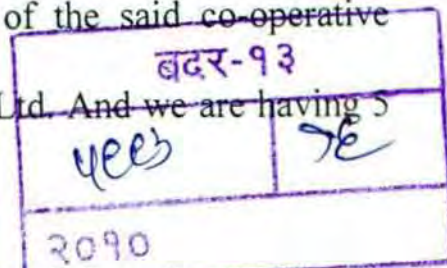 of the said co-operative
बदर-१३
Ltd. And we are having 5
५८८७ २६
२०१०